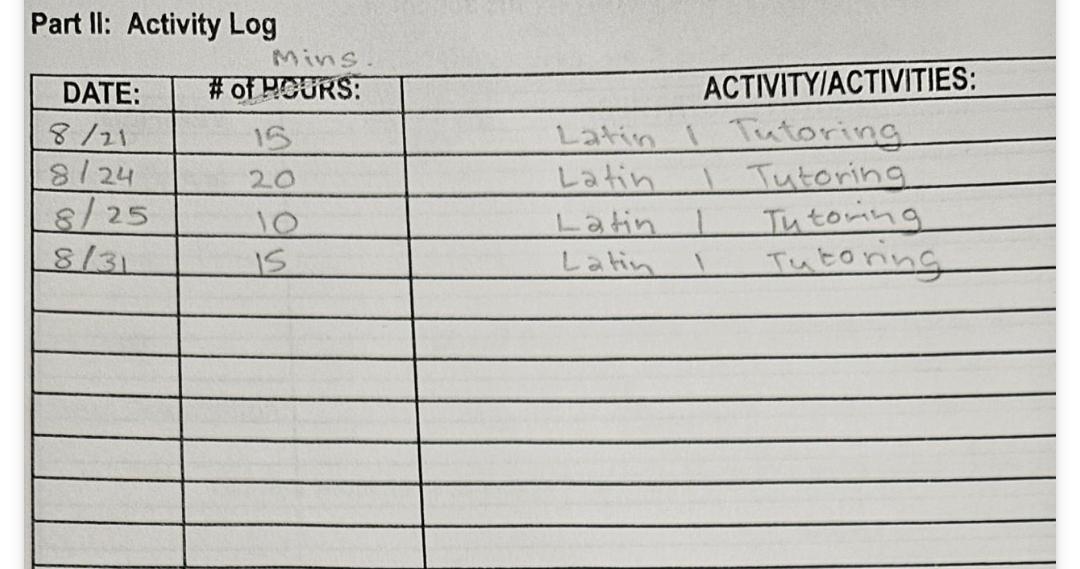 Part II: Activity Log
Mins.
DATE: # of HOURS: ACTIVITY/ACTIVITIES:
8/21 15 Latin 1 Tutoring
8/24 20 Latin 1 Tutoring
8/25 10 Latin 1 Tutoring
8/31 15 Latin 1 Tutoring